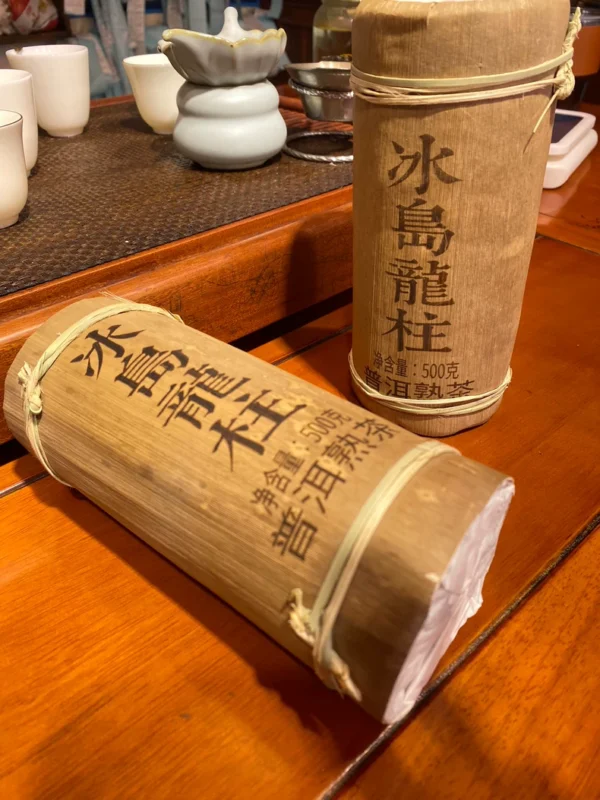 冰島龍柱
净含量：500克
普洱熟茶
冰島龍柱
净含量：500克
普洱熟茶